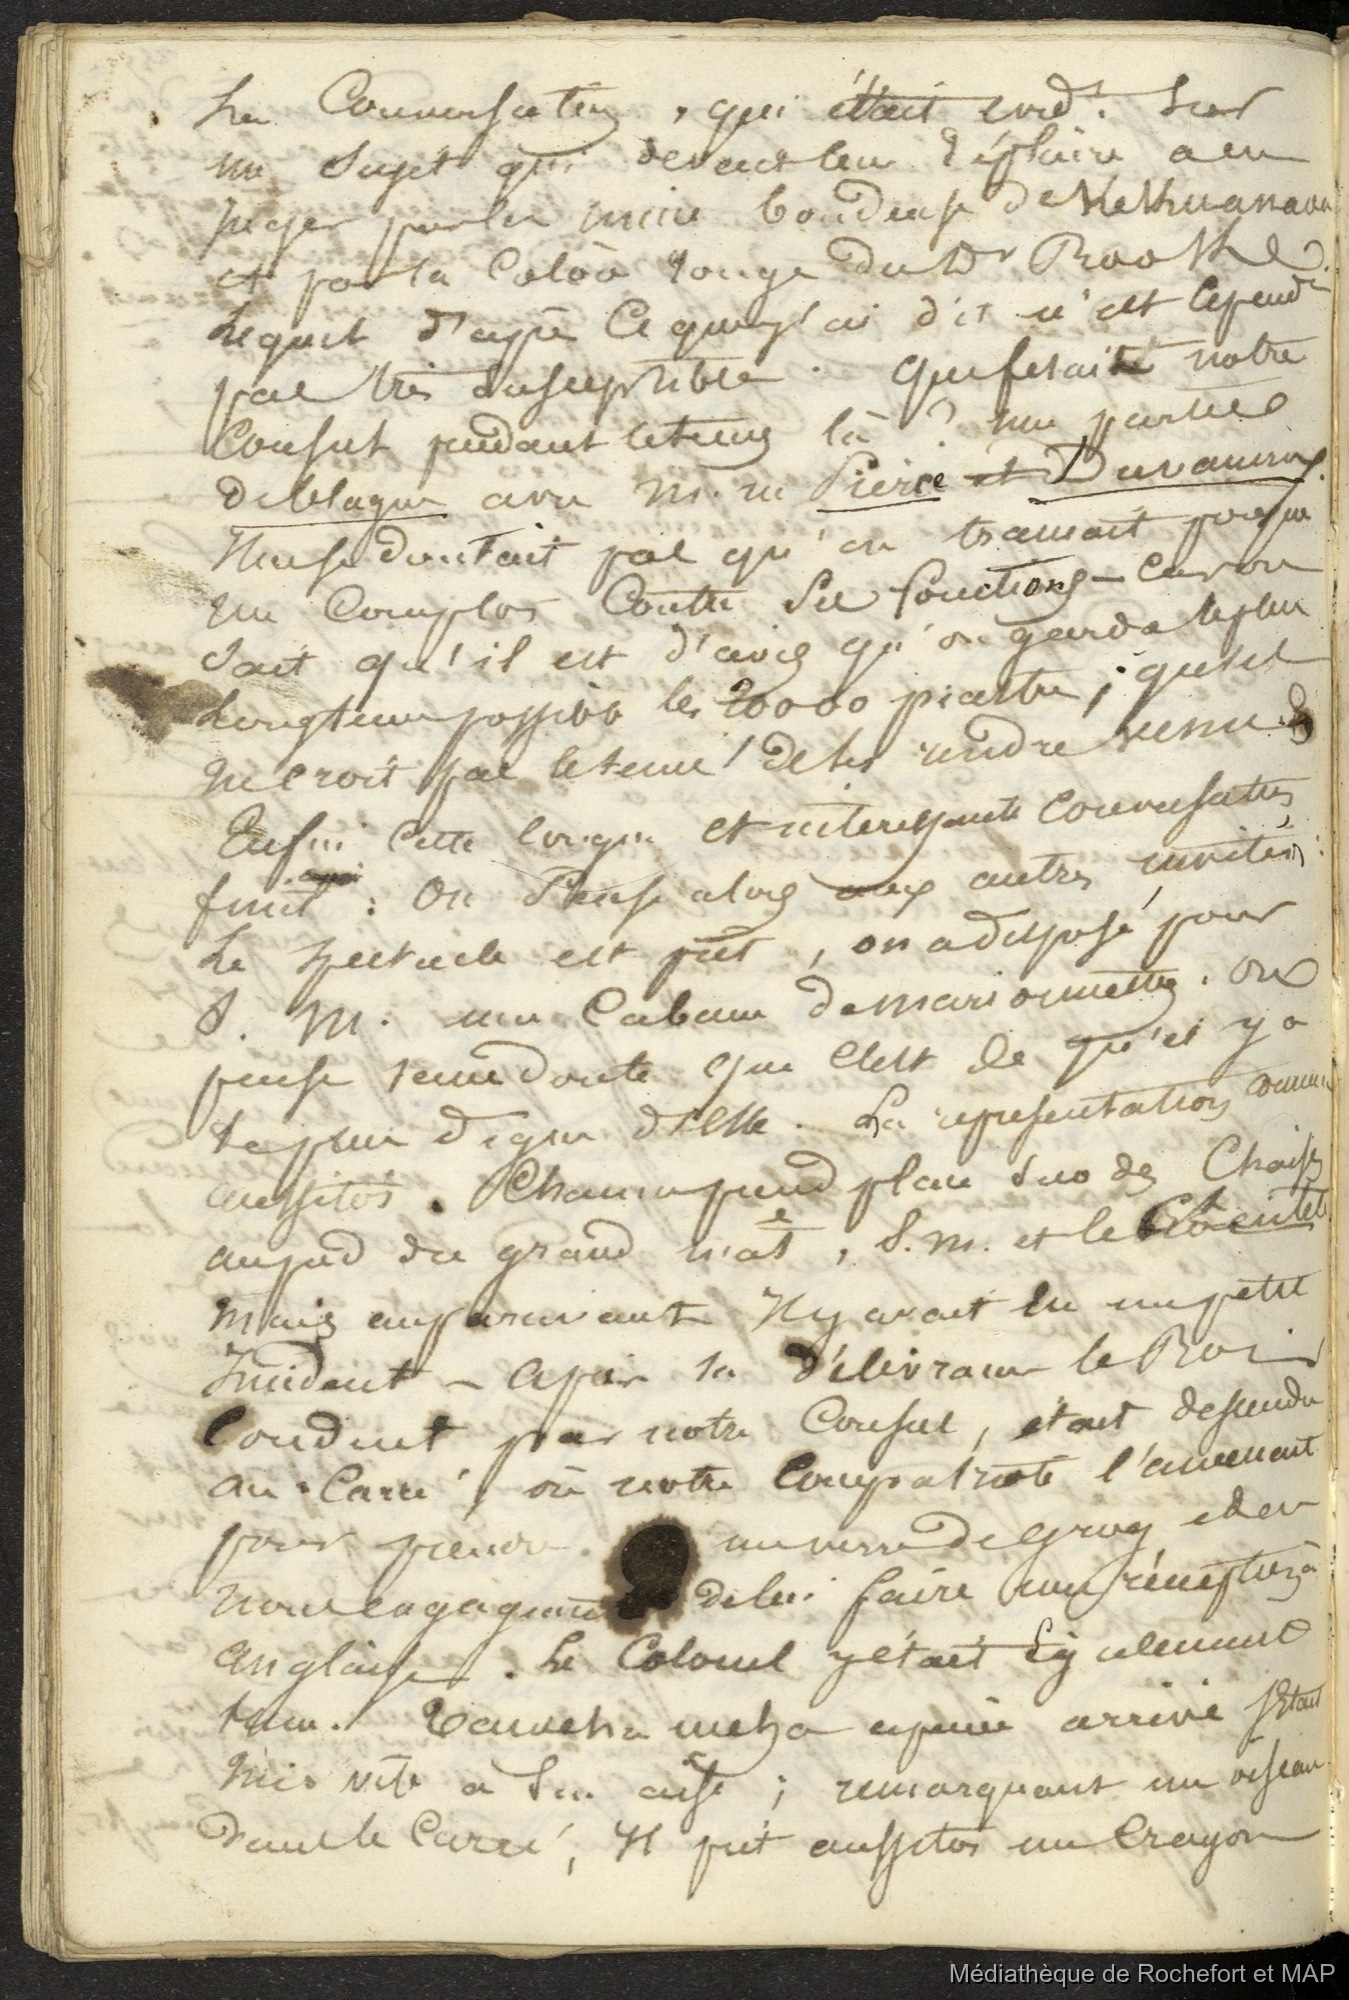 La Conversation, qui était evid.t sur
un Sujet qui devait leur déplaire a en
juger par la mine boudeuse de Kekuanaoa
et par la Coloõ rouge du Dr Rooke.
Lequel d'après ce que j'ai dit n'est cepend.t
pas très susceptible. que fesait notre
Consul pendant le tems là ? une partie
de blague avec M. rs Pierce et Duvauuns.
Il ne se doutait pas qu'on tramait presque
un Complot Contre Ses fonctions - car on
Sait qu'il est d'avis qu'on garda le plus
longtems possible les 20000 piastres ; qu'il
ne croit pas le tems de les rendre venu.
Enfin cette longue et interessante Conversation
finit : On pense alors aux autres invités :
Le spectacle est prêt, on a disposé pour
S. M. une Cabane de marionnettes. on
pense sans doute que c'est ce qu'il y a
le plus digne d'elle. La representation commence
aussitôt. Chacun prend place sur des Chaises
au pied du grand mat, S. M. et le
mais auparavant Il y avait eu un petit
Incident - après sa délivrance le Roi
Conduit par notre Consul, était descendu
au Carré, où notre Compatriote l'amenait
pour prendre un verre de grog et en
nous engageant de lui faire une réception à
anglaise. Le Colonel y était également
venu. à peine arrivé s'était
mis vite à Son aise ; remarquant un oiseau
dans le Carré, Il prit aussitôt un Crayon
Médiathèque de Rochefort et MAP